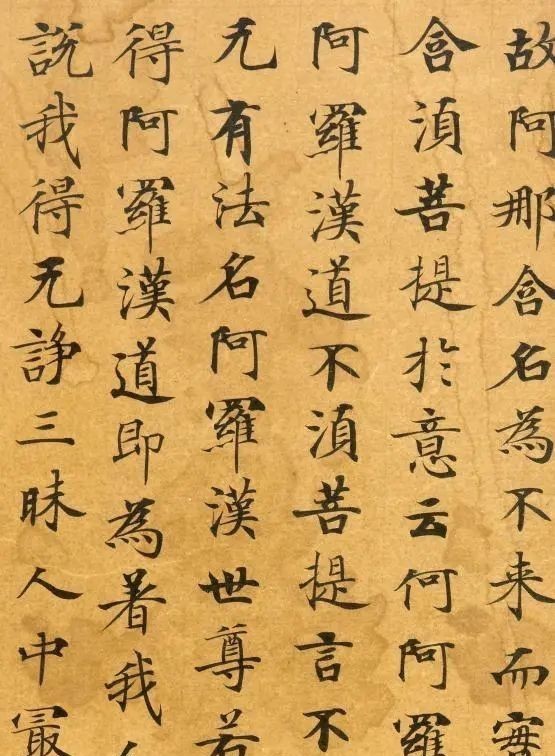 故阿那含名為不来而實
含湏菩提於意云何阿羅
阿羅漢道不湏菩提言不
无有法名阿羅漢世尊若
得阿羅漢道即為著我人
說我得无諍三昧人中冣